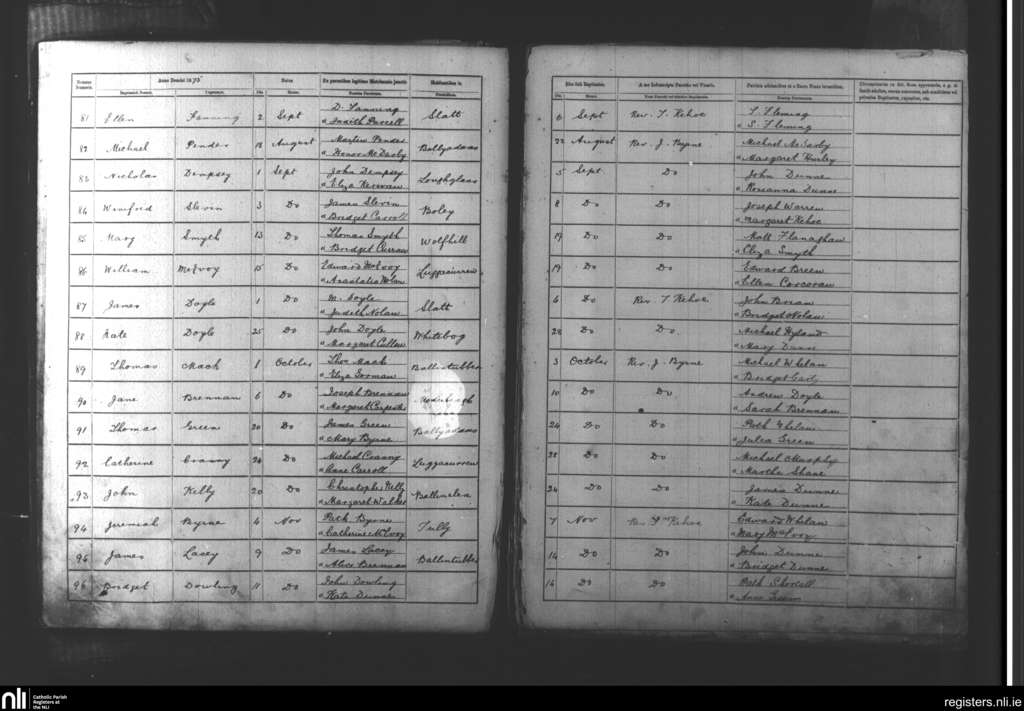 Anno Domini 1875
Natus
Habitantibus in
Die
81 Ellen Fanning 2 Sept D. Fanning Slatt 6 Sept Rev. T. Kehoe T. Fleming
" Judith Purcell " S. Fleming
82 Michael Pender 18 August Martin Pender Ballyadams 22 August Rev. J. Byrne Michael McDarby
" Honor McDarby " Margaret Hurley
83 Nicholas Dempsey 1 Sept John Dempsey Loughglass 5 Sept Do John Dunne
" Eliza Kerwan " Rosanna Dunne
84 Winifred Slevin 3 Do James Slevin Boley 8 Do Do Joseph Warren
" Bridget Carroll " Margaret Kehoe
85 Mary Smyth 13 Do Thomas Smyth Wolfhill 19 Do Do Matt Flanaghan
" Bridget Curran " Eliza Smyth
86 William McEvoy 15 Do Edward McEvoy Luggacurren 19 Do Do Edward Breen
" Anastatia " Ellen Corcoran
87 James Doyle 1 Do M. Doyle Slatt 6 Do Rev. T. Kehoe John Boran
" Judith Nolan " Bridget Nolan
88 Kate Doyle 25 Do John Doyle Whitebog 28 Do Do Michael Hyland
" Margaret Cullen " Mary Dunne
89 Thomas Mack 1 October Thos Mack Ballintubber 3 October Rev. J. Byrne Michael Whelan
" Eliza Gorman " Bridget
90 Jane Brennan 6 Do Joseph Brennan 10 Do Do Andrew Doyle
" Margaret " Sarah Brennan
91 Thomas Green 20 Do James Green Ballyadams 24 Do Do Path Whelan
" Mary Byrne " Julia Green
92 Catherine Cranny 24 Do Michael Cranny Luggacurren 28 Do Do Michael Murphy
" Anne Carroll " Martha Shane
93 John Kelly 20 Do Christopher Kelly Ballinclea 24 Do Do James Dunne
" Margaret Walker " Kate Dunne
94 Jeremiah Byrne 4 Nov Path Byrne Tully 7 Nov Rev. Wm Kehoe Edward Whelan
" Catherine McEvoy " Mary McEvoy
95 James Lacey 9 Do James Lacey Ballintubber 14 Do Do John Dunne
" Alice Brennan " Bridget Dunne
96 Bridget Dowling 11 Do John Dowling 16 Do Do Path Shortall
" Kate Dunne " Anne Green
nli Catholic Parish
Registers at
the NLI
registers.nli.ie